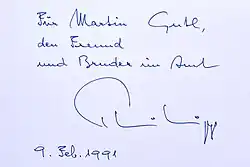 Für Martin Gutl,
den Freund
und Bruder im Amt
9. Feb. 1991